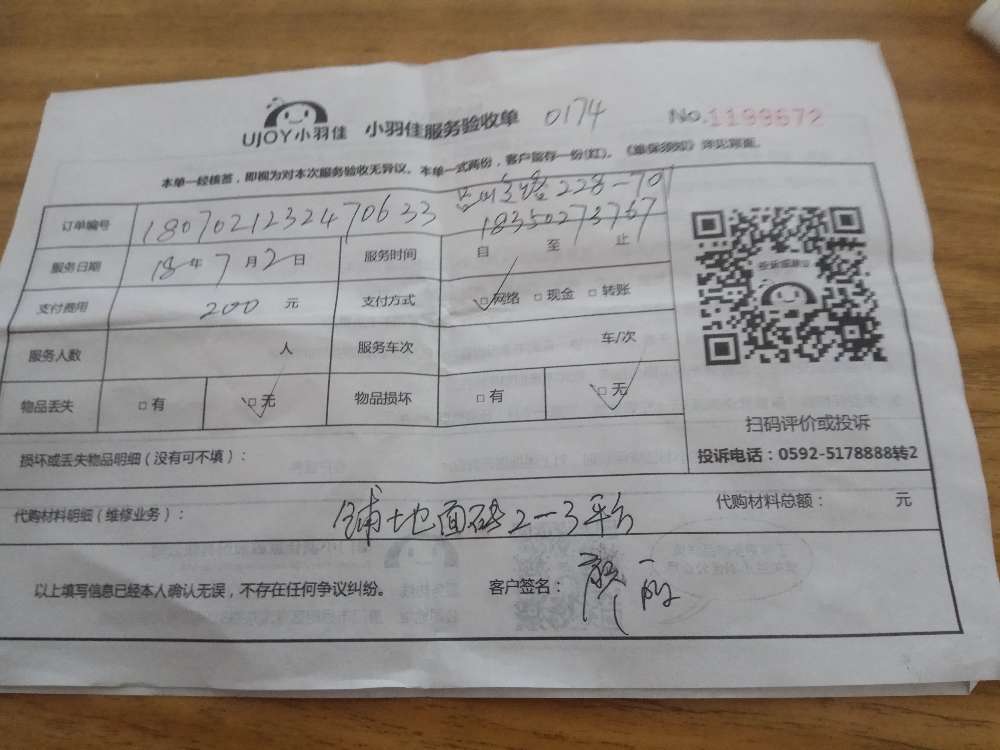 UJOY小羽佳 小羽佳服务验收单 0174 No.1199672
本单一经核签，即视为对本次服务验收无异议。本单一式两份，客户留存一份(红)。《维保须知》详见背面。
228-70
订单编号 180702123247063 3 18350273767
服务日期 18年7月2日 服务时间 自 至 止
支付费用 200 元 支付方式 □网络 □现金 □转账
服务人数 人 服务车次 车/次
物品丢失 □有 □无 物品损坏 □有 □无
扫码评价或投诉
投诉电话：0592-5178888转2
损坏或丢失物品明细（没有可不填）：
代购材料明细（维修业务）： 铺地面砖2-3平方 代购材料总额： 元
以上填写信息已经本人确认无误，不存在任何争议纠纷。 客户签名：